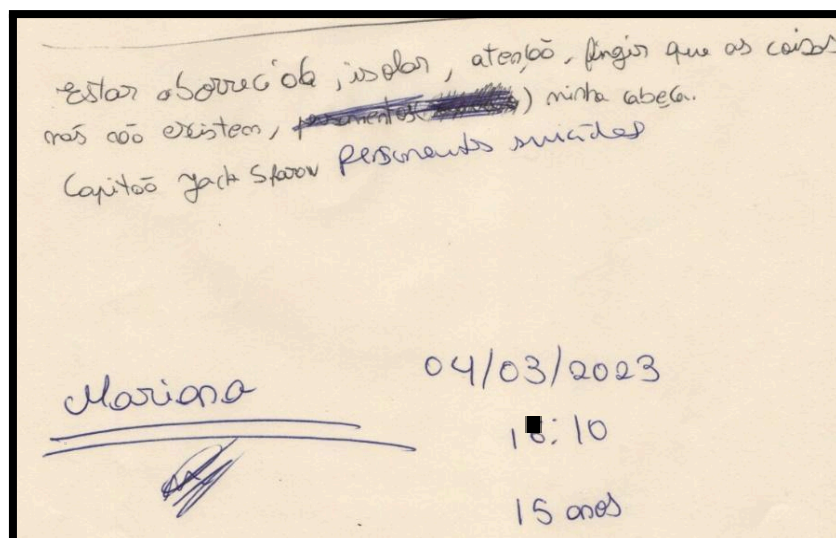 Estar aborrecida, isolar, atenção, fingir que as coisas
más não existem, ) minha cabeça.
Capitão Jack Sparow pensamentos suicidas
Mariana
04/03/2023
:10
15 anos